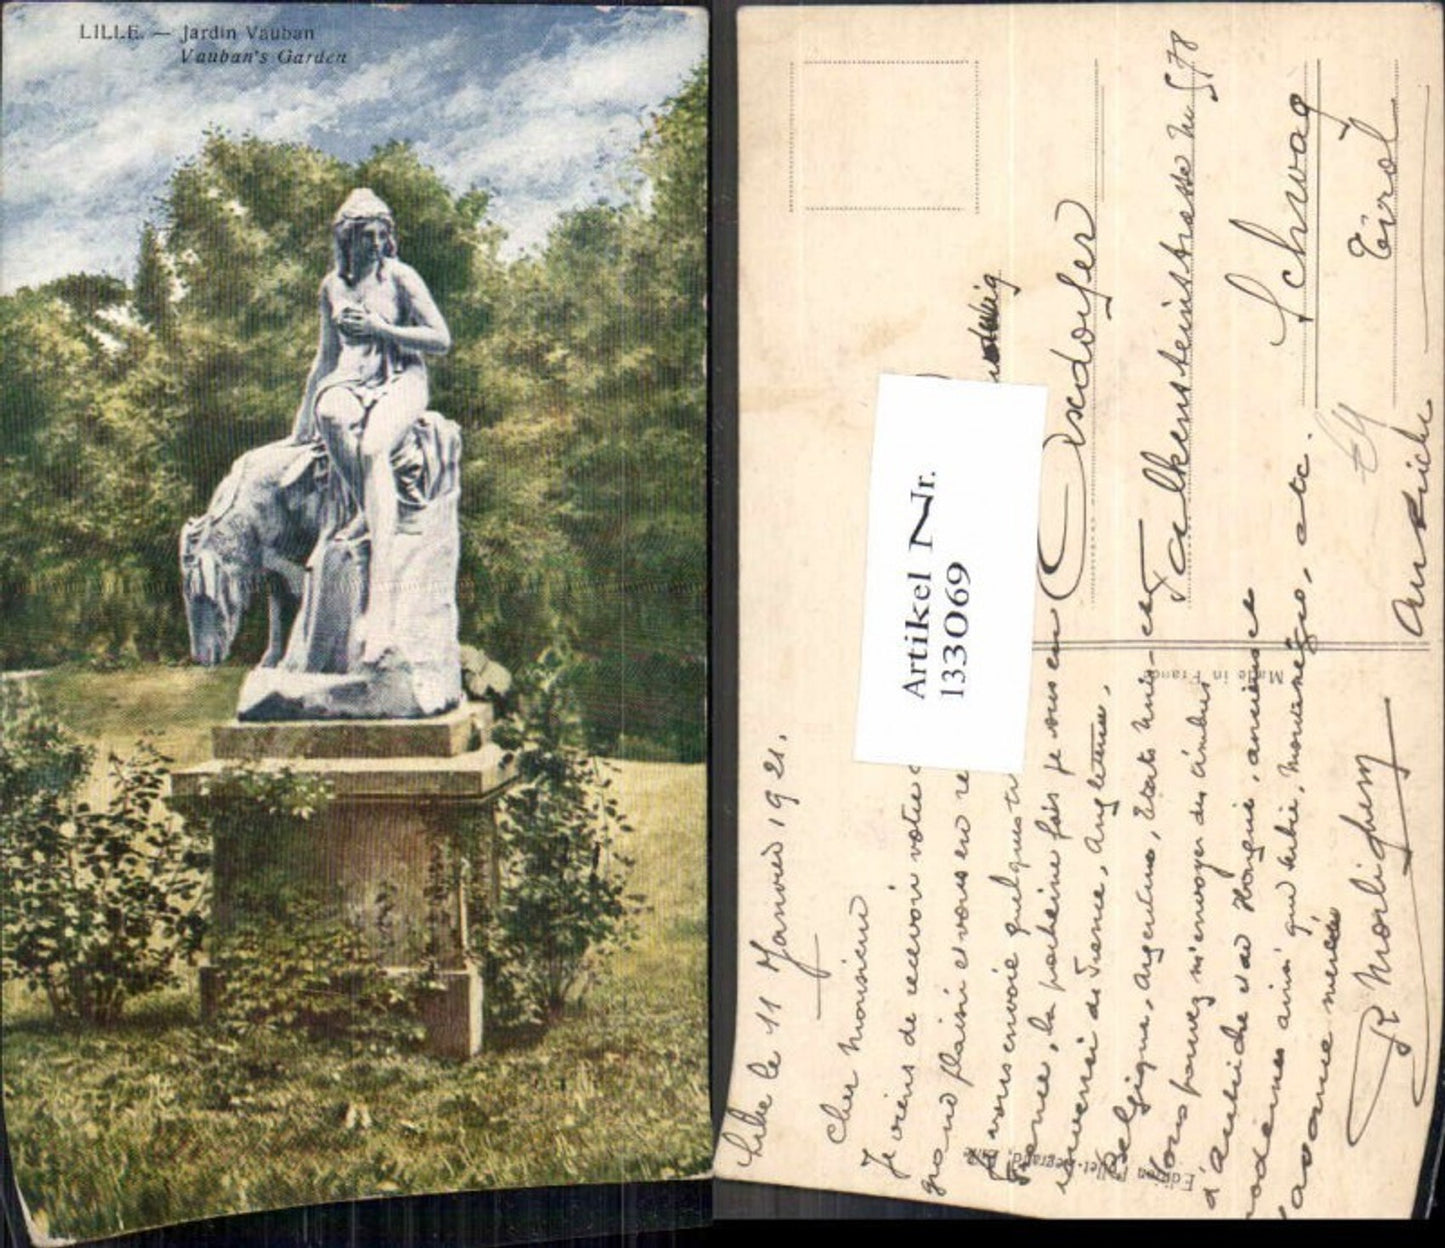 LILLE. — Jardin Vauban
Vauban's Garden
Artikel Nr.
133069
Made in France
Lille le 11 Janvier 1921.
Cher Monsieur
Je viens de recevoir votre
grand plaisir et vous en re
Je vous envoie quelques ti
France, la prochaine fois je vous en
enverrai de France, Angleterre,
Belgique, Argentine, Etats Unis, etc
Vous pouvez m'envoyer des timbres
d'Autriche et de Hongrie, anciens et
modernes ainsi que Serbie, Monténégro, etc.
avance merci
Falkensteinstrasse No 578
Schwag
Tirol
Autriche